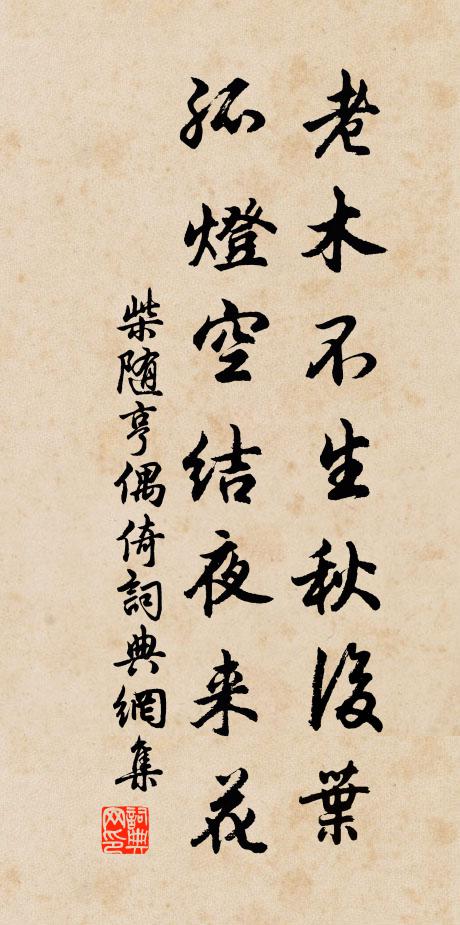 老木不生秋後葉
孤燈空結夜来花
柴随亨偶倚詞典網集
詞典网印